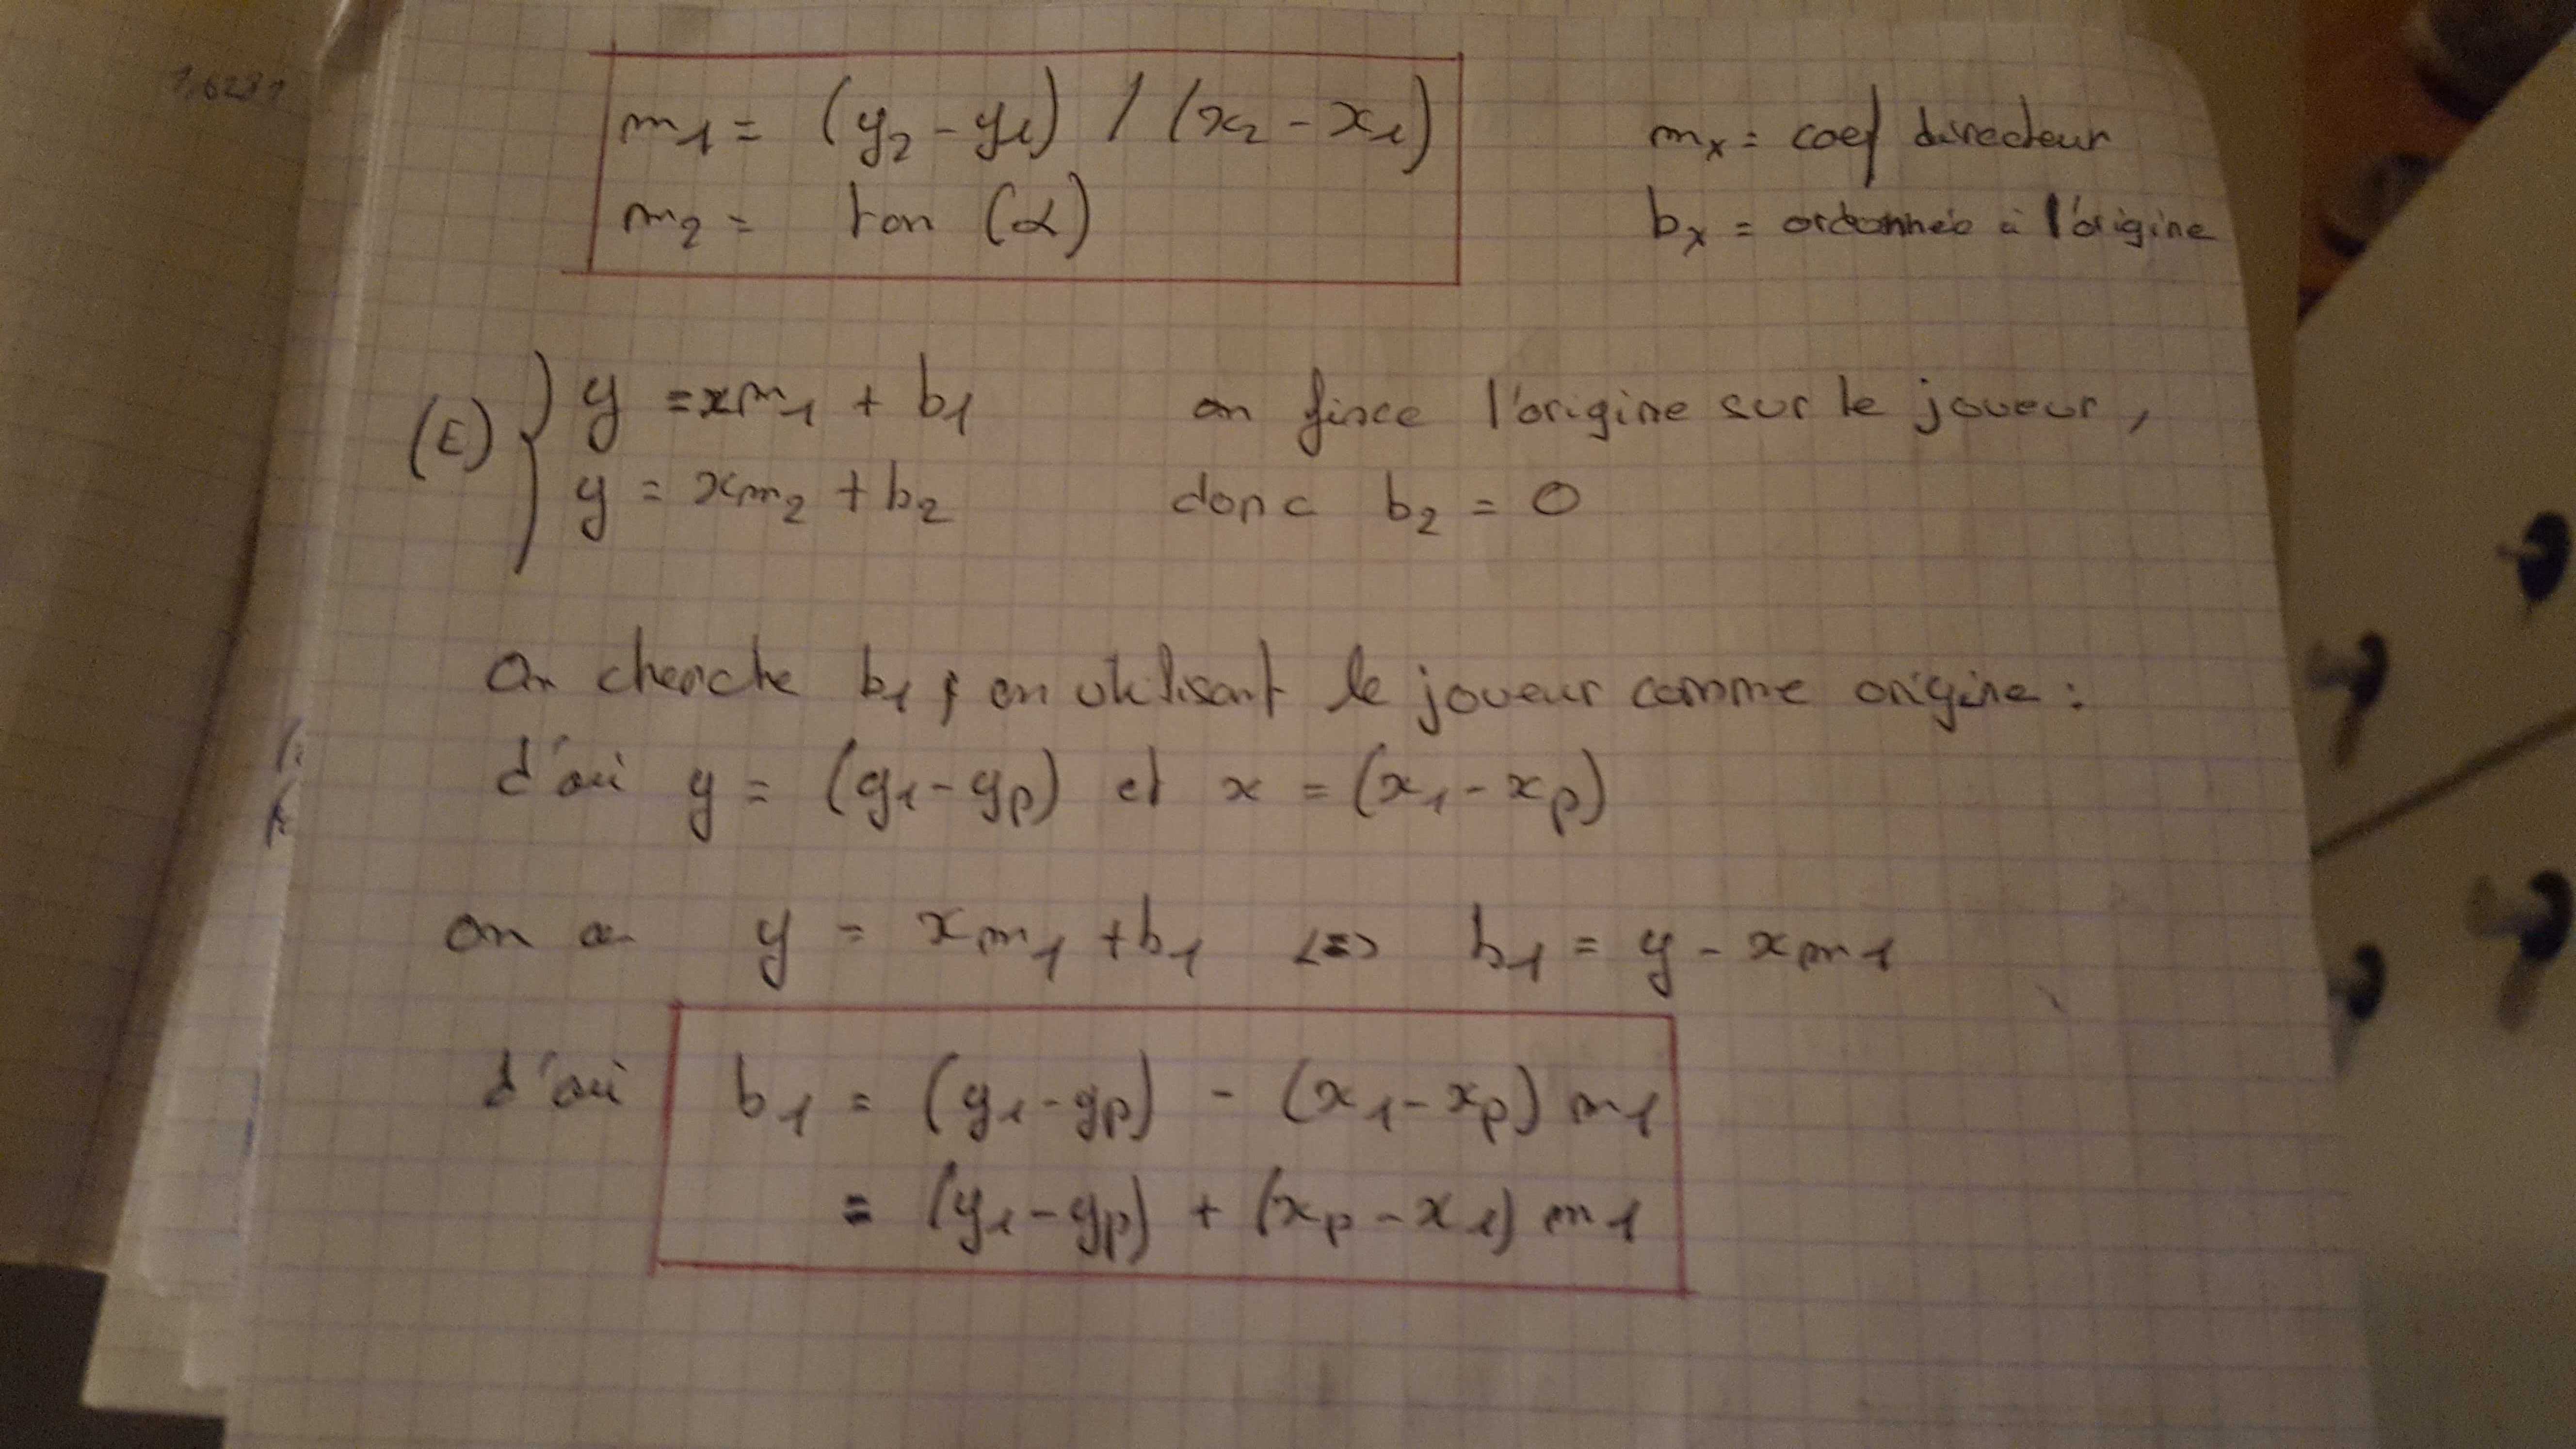 m1 = (y2 - y1) / (x2 - x1)
m2 = tan (α)
mx = coef directeur
bx = ordonnée à l'origine
(E) { y = xm1 + b1
y = xm2 + b2
on fixe l'origine sur le joueur,
donc b2 = 0
On cherche b1, en utilisant le joueur comme origine :
d'où y = (y1 - yp) et x = (x1 - xp)
on a y = xm1 + b1 <=> b1 = y - xm1
d'où b1 = (y1 - yp) - (x1 - xp) m1
= (y1 - yp) + (xp - x1) m1